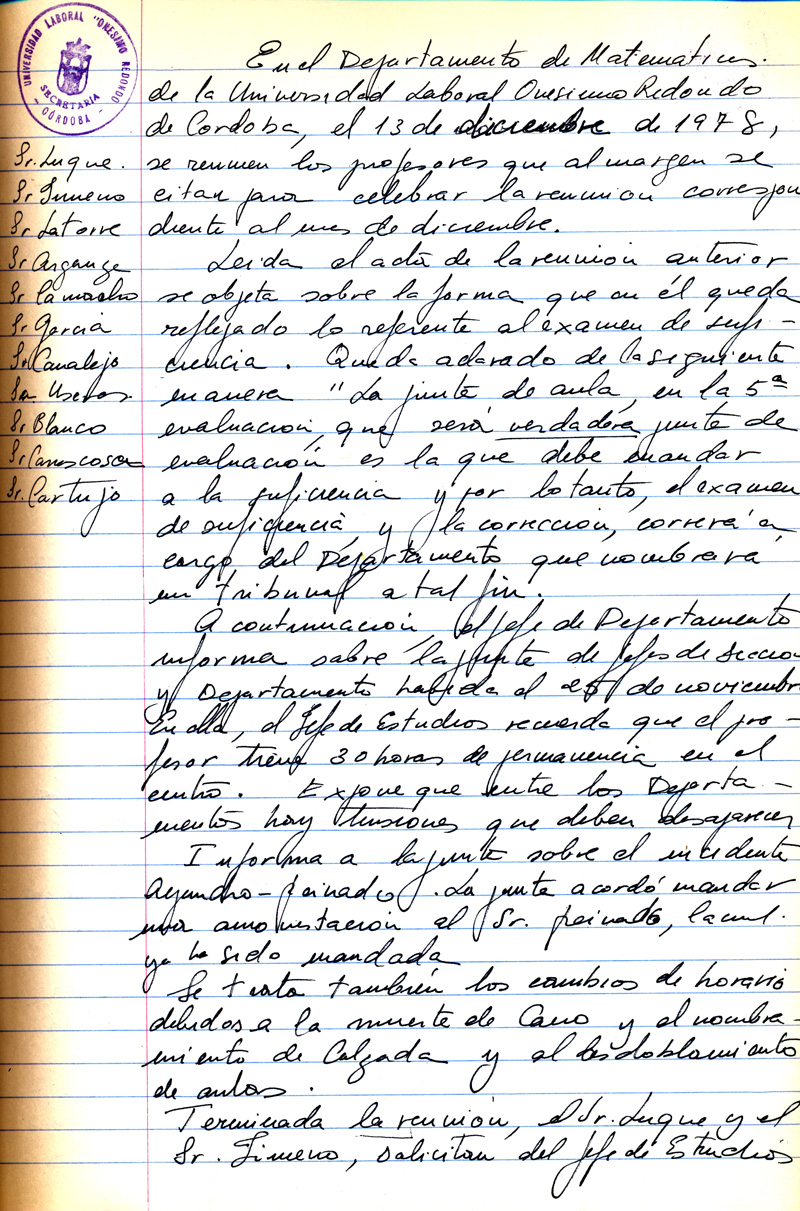 UNIVERSIDAD LABORAL "ONESIMO REDONDO
SECRETARIA
- CÓRDOBA -
En el Departamento de Matemáticas.
de la Universidad Laboral Onesimo Redondo
de Cordoba, el 13 de diciembre de 1978,
Sr. Luque. se reunen los profesores que al margen se
Sr Jimeno citan para celebrar la reunion correspon
Sr Latorre diente al mes de diciembre.
Sr Arganze Leida el acta de la reunion anterior
Sr Camacho se objeta sobre la forma que en él queda
Sr Garcia reflejado lo referente al examen de sufi-
Sr Canalejo ciencia. Queda aclarado de la siguiente
Sr Useros. manera "La junta de aula, en la 5ª
Sr Blanco evaluacion, que será verdadera junta de
Sr Carrascosa evaluación es la que debe mandar
Sr. Cartujo a la suficiencia y por lo tanto, el examen
de suficiencia, y la correccion, correrá a
cargo del Departamento que nombrará
un tribunal a tal fin.
A continuación, el Jefe de Departamento
informa sobre la junta de Jefes de Seccion
y Departamento habida el de noviembre
En ella, el Jefe de Estudios recuerda que el pro-
fesor tiene 30 horas de permanencia en el
centro. Expone que entre los Departa-
mentos hay tensiones que deben desaparecer
Informa a la junta sobre el incidente
- Peinado. La junta acordó mandar
una amonestación al Sr. Peinado, la cual.
ya ha sido mandada
Se trata también los cambios de horario
debidos a la muerte de Cano y al nombra-
miento de Calzada y al desdoblamiento
de aulas.
Terminada la reunión, el Sr. Luque y el
Sr. Jimeno, solicitan del Jefe de Estudios